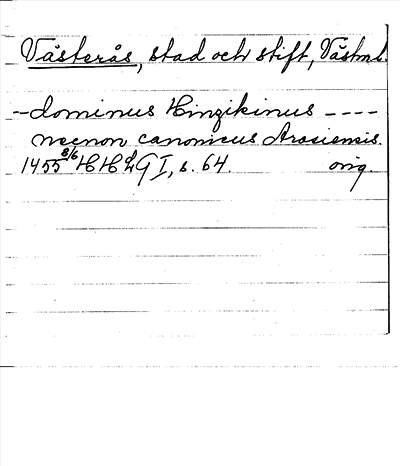 Västerås, stad och stift, Västml.
-- dominus Hinzikinus ----
necnon canonicus Arosiensis.
1455 8/6 HHLG I, s. 64. orig.